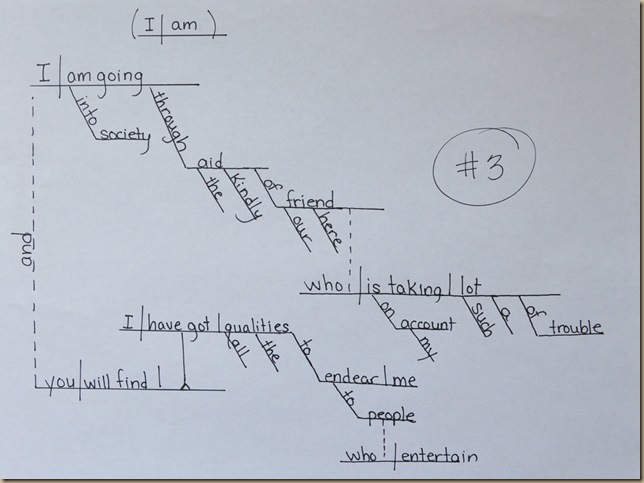 ( I am )
I am going
into
society
through
aid
the
kindly
of
friend
our
here
#3
and
who is taking lot
on
account
my
such
a
of
trouble
I have got qualities
all
the
to
endear me
to
people
who entertain
you will find